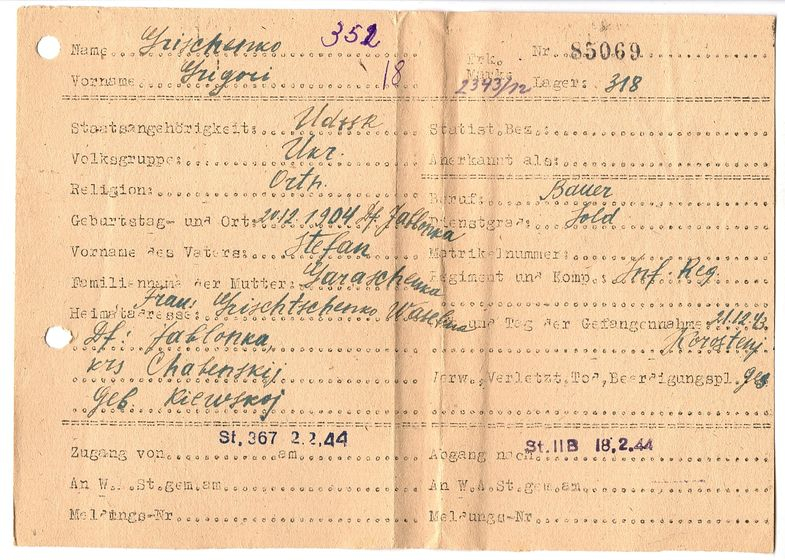 352
Name Grischenko
Frk. Nr. 85069
Vorname Grigori 18
Mark: 2393/12 Lager: 318
Staatsangehörigkeit: UdSSR
Statist.Bez.:
Volksgruppe: Ukr.
Anerkannt als:
Religion: Orth.
Beruf: Bauer
Geburtstag- und Ort: 20.12.1904 Df. Jablonka
Dienstgrad: Sold
Vorname des Vaters: Stefan
Matrikelnummer:
Familienname der Mutter: Garaschenka
Regiment und Komp.: Inf. Reg.
Heimatadresse: Frau: Grischtschenko Waselina
und Tag der Gefangennahme 21.12.43
Df: Jablonka,
Korostenj.
krs Chabenskij
Verw., Verletzt, Tod, Beerdigungspl. ges
Geb. Kiewskoj
St. 367 2.2.44
St. IIB 18.2.44
Zugang von am
Abgang nach
An W.A.St.gem.am
An W.A.St.gem.am
Meldungs-Nr
Meldungs-Nr